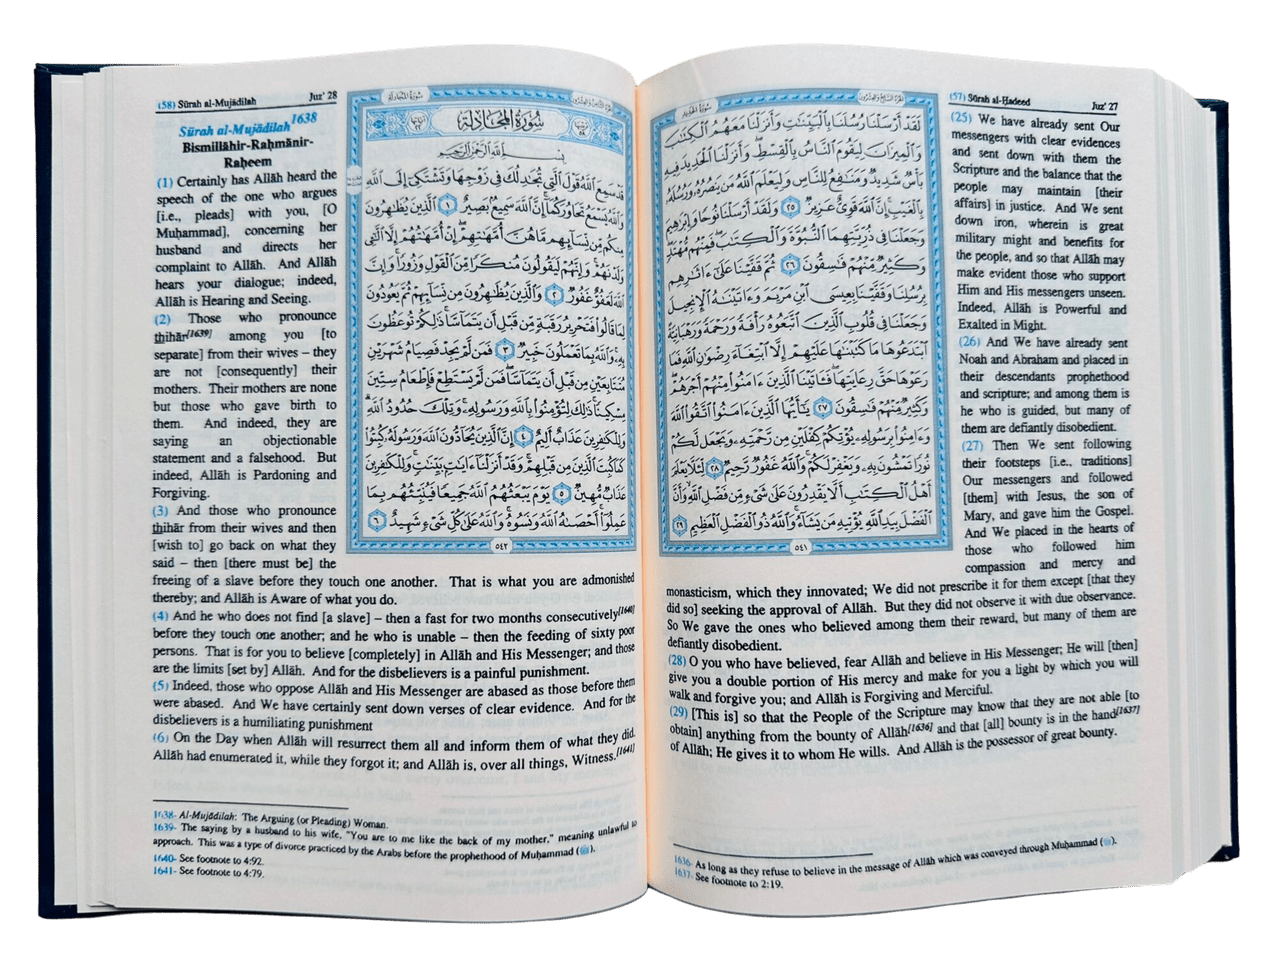 (57) Sūrah al-Ḥadeed Juz' 27
سورة الحديد الجزء السابع والعشرون
لَقَدْ أَرْسَلْنَا رُسُلَنَا بِالْبَيِّنَاتِ وَأَنزَلْنَا مَعَهُمُ الْكِتَابَ
وَالْمِيزَانَ لِيَقُومَ النَّاسُ بِالْقِسْطِ ۖ وَأَنزَلْنَا الْحَدِيدَ فِيهِ
بَأْسٌ شَدِيدٌ وَمَنَافِعُ لِلنَّاسِ وَلِيَعْلَمَ اللَّهُ مَن يَنصُرُهُ وَرُسُلَهُ
بِالْغَيْبِ ۚ إِنَّ اللَّهَ قَوِيٌّ عَزِيزٌ ٢٥ وَلَقَدْ أَرْسَلْنَا نُوحًا وَإِبْرَاهِيمَ
وَجَعَلْنَا فِي ذُرِّيَّتِهِمَا النُّبُوَّةَ وَالْكِتَابَ ۖ فَمِنْهُم مُّهْتَدٍ ۖ
وَكَثِيرٌ مِّنْهُمْ فَاسِقُونَ ٢٦ ثُمَّ قَفَّيْنَا عَلَىٰ آثَارِهِم
بِرُسُلِنَا وَقَفَّيْنَا بِعِيسَى ابْنِ مَرْيَمَ وَآتَيْنَاهُ الْإِنجِيلَ
وَجَعَلْنَا فِي قُلُوبِ الَّذِينَ اتَّبَعُوهُ رَأْفَةً وَرَحْمَةً وَرَهْبَانِيَّةً
ابْتَدَعُوهَا مَا كَتَبْنَاهَا عَلَيْهِمْ إِلَّا ابْتِغَاءَ رِضْوَانِ اللَّهِ فَمَا
رَعَوْهَا حَقَّ رِعَايَتِهَا ۖ فَآتَيْنَا الَّذِينَ آمَنُوا مِنْهُمْ أَجْرَهُمْ ۖ
وَكَثِيرٌ مِّنْهُمْ فَاسِقُونَ ٢٧ يَا أَيُّهَا الَّذِينَ آمَنُوا اتَّقُوا اللَّهَ
وَآمِنُوا بِرَسُولِهِ يُؤْتِكُمْ كِفْلَيْنِ مِن رَّحْمَتِهِ وَيَجْعَل لَّكُمْ
نُورًا تَمْشُونَ بِهِ وَيَغْفِرْ لَكُمْ ۚ وَاللَّهُ غَفُورٌ رَّحِيمٌ ٢٨ لِّئَلَّا يَعْلَمَ
أَهْلُ الْكِتَابِ أَلَّا يَقْدِرُونَ عَلَىٰ شَيْءٍ مِّن فَضْلِ اللَّهِ ۙ وَأَنَّ
الْفَضْلَ بِيَدِ اللَّهِ يُؤْتِيهِ مَن يَشَاءُ ۚ وَاللَّهُ ذُو الْفَضْلِ الْعَظِيمِ ٢٩
٥٤١
(25) We have already sent Our
messengers with clear evidences
and sent down with them the
Scripture and the balance that the
people may maintain [their
affairs] in justice. And We sent
down iron, wherein is great
military might and benefits for
the people, and so that Allāh may
make evident those who support
Him and His messengers unseen.
Indeed, Allāh is Powerful and
Exalted in Might.
(26) And We have already sent
Noah and Abraham and placed in
their descendants prophethood
and scripture; and among them is
he who is guided, but many of
them are defiantly disobedient.
(27) Then We sent following
their footsteps [i.e., traditions]
Our messengers and followed
[them] with Jesus, the son of
Mary, and gave him the Gospel.
And We placed in the hearts of
those who followed him
compassion and mercy and
monasticism, which they innovated; We did not prescribe it for them except [that they
did so] seeking the approval of Allāh. But they did not observe it with due observance.
So We gave the ones who believed among them their reward, but many of them are
defiantly disobedient.
(28) O you who have believed, fear Allāh and believe in His Messenger; He will [then]
give you a double portion of His mercy and make for you a light by which you will
walk and forgive you; and Allāh is Forgiving and Merciful.
(29) [This is] so that the People of the Scripture may know that they are not able [to
obtain] anything from the bounty of Allāh[1636] and that [all] bounty is in the hand[1637]
of Allāh; He gives it to whom He wills. And Allāh is the possessor of great bounty.
1636- As long as they refuse to believe in the message of Allāh which was conveyed through Muḥammad (ﷺ).
1637- See footnote to 2:19.
(58) Sūrah al-Mujādilah Juz' 28
سورة المجادلة الجزء الثامن والعشرون
سُورَةُ المُجَادلة
بِسْمِ اللَّهِ الرَّحْمَٰنِ الرَّحِيمِ
قَدْ سَمِعَ اللَّهُ قَوْلَ الَّتِي تُجَادِلُكَ فِي زَوْجِهَا وَتَشْتَكِي إِلَى اللَّهِ
وَاللَّهُ يَسْمَعُ تَحَاوُرَكُمَا ۚ إِنَّ اللَّهَ سَمِيعٌ بَصِيرٌ ١ الَّذِينَ يُظَاهِرُونَ
مِنكُم مِّن نِّسَائِهِم مَّا هُنَّ أُمَّهَاتِهِمْ ۖ إِنْ أُمَّهَاتُهُمْ إِلَّا اللَّائِي
وَلَدْنَهُمْ ۚ وَإِنَّهُمْ لَيَقُولُونَ مُنكَرًا مِّنَ الْقَوْلِ وَزُورًا ۚ وَإِنَّ
اللَّهَ لَعَفُوٌّ غَفُورٌ ٢ وَالَّذِينَ يُظَاهِرُونَ مِن نِّسَائِهِمْ ثُمَّ يَعُودُونَ
لِمَا قَالُوا فَتَحْرِيرُ رَقَبَةٍ مِّن قَبْلِ أَن يَتَمَاسَّا ۚ ذَٰلِكُمْ تُوعَظُونَ
بِهِ ۚ وَاللَّهُ بِمَا تَعْمَلُونَ خَبِيرٌ ٣ فَمَن لَّمْ يَجِدْ فَصِيَامُ شَهْرَيْنِ
مُتَتَابِعَيْنِ مِن قَبْلِ أَن يَتَمَاسَّا ۖ فَمَن لَّمْ يَسْتَطِعْ فَإِطْعَامُ سِتِّينَ
مِسْكِينًا ۚ ذَٰلِكَ لِتُؤْمِنُوا بِاللَّهِ وَرَسُولِهِ ۚ وَتِلْكَ حُدُودُ اللَّهِ ۗ
وَلِلْكَافِرِينَ عَذَابٌ أَلِيمٌ ٤ إِنَّ الَّذِينَ يُحَادُّونَ اللَّهَ وَرَسُولَهُ كُبِتُوا
كَمَا كُبِتَ الَّذِينَ مِن قَبْلِهِمْ ۚ وَقَدْ أَنزَلْنَا آيَاتٍ بَيِّنَاتٍ ۚ وَلِلْكَافِرِينَ
عَذَابٌ مُّهِينٌ ٥ يَوْمَ يَبْعَثُهُمُ اللَّهُ جَمِيعًا فَيُنَبِّئُهُم بِمَا
عَمِلُوا ۚ أَحْصَاهُ اللَّهُ وَنَسُوهُ ۚ وَاللَّهُ عَلَىٰ كُلِّ شَيْءٍ شَهِيدٌ ٦
٥٤٢
Sūrah al-Mujādilah1638
Bismillāhir-Raḥmānir-
Raḥeem
(1) Certainly has Allāh heard the
speech of the one who argues
[i.e., pleads] with you, [O
Muḥammad], concerning her
husband and directs her
complaint to Allāh. And Allāh
hears your dialogue; indeed,
Allāh is Hearing and Seeing.
(2) Those who pronounce
thihār[1639] among you [to
separate] from their wives – they
are not [consequently] their
mothers. Their mothers are none
but those who gave birth to
them. And indeed, they are
saying an objectionable
statement and a falsehood. But
indeed, Allāh is Pardoning and
Forgiving.
(3) And those who pronounce
thihār from their wives and then
[wish to] go back on what they
said – then [there must be] the
freeing of a slave before they touch one another. That is what you are admonished
thereby; and Allāh is Aware of what you do.
(4) And he who does not find [a slave] – then a fast for two months consecutively[1640]
before they touch one another; and he who is unable – then the feeding of sixty poor
persons. That is for you to believe [completely] in Allāh and His Messenger; and those
are the limits [set by] Allāh. And for the disbelievers is a painful punishment.
(5) Indeed, those who oppose Allāh and His Messenger are abased as those before them
were abased. And We have certainly sent down verses of clear evidence. And for the
disbelievers is a humiliating punishment
(6) On the Day when Allāh will resurrect them all and inform them of what they did.
Allāh had enumerated it, while they forgot it; and Allāh is, over all things, Witness.[1641]
1638- Al-Mujādilah: The Arguing (or Pleading) Woman.
1639- The saying by a husband to his wife, "You are to me like the back of my mother," meaning unlawful to
approach. This was a type of divorce practiced by the Arabs before the prophethood of Muḥammad (ﷺ).
1640- See footnote to 4:92.
1641- See footnote to 4:79.